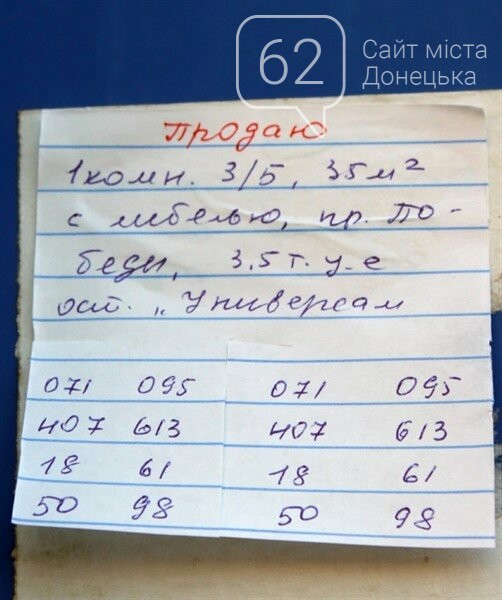 62
Сайт міста
Донецька
Продаю
1 комн. 3/5, 35 м²
с мебелью, пр. По-
беды, 3.5 т. у.е
ост. „Универсам
071 095 071 095
407 613 407 613
18 61 18 61
50 98 50 98